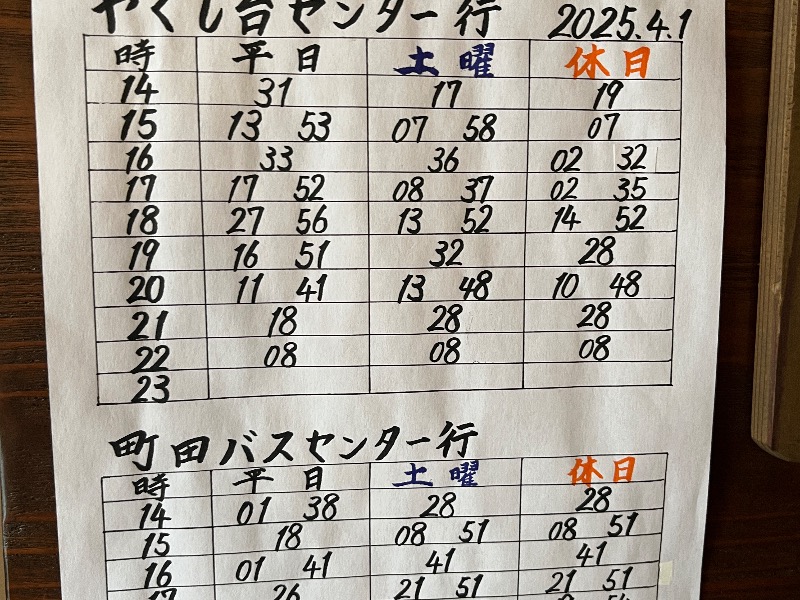 やくし台センター行 2025.4.1
時 平日 土曜 休日
14 31 17 19
15 13 53 07 58 07
16 33 36 02 32
17 17 52 08 37 02 35
18 27 56 13 52 14 52
19 16 51 32 28
20 11 41 13 48 10 48
21 18 28 28
22 08 08 08
23
町田バスセンター行
時 平日 土曜 休日
14 01 38 28 28
15 18 08 51 08 51
16 01 41 41 41
17 26 21 51 21 51